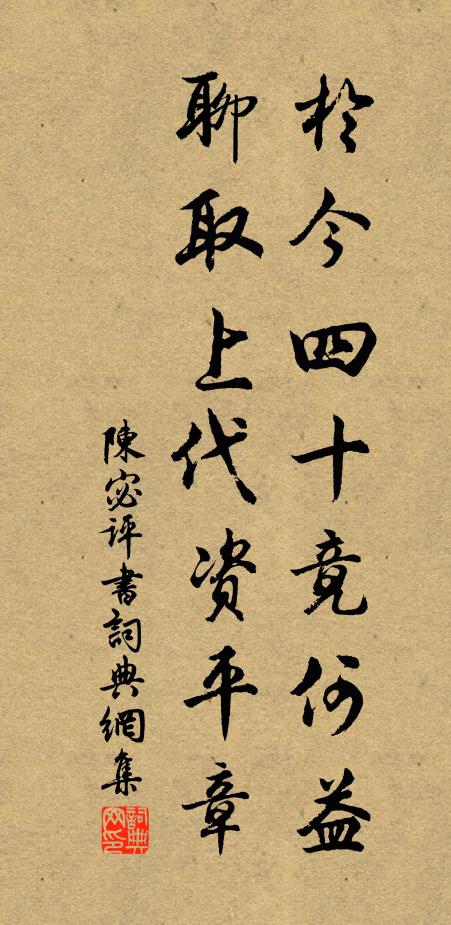 於今四十竟何益
聊取上代资平章
陳宓評書詞典網集
詞典網印